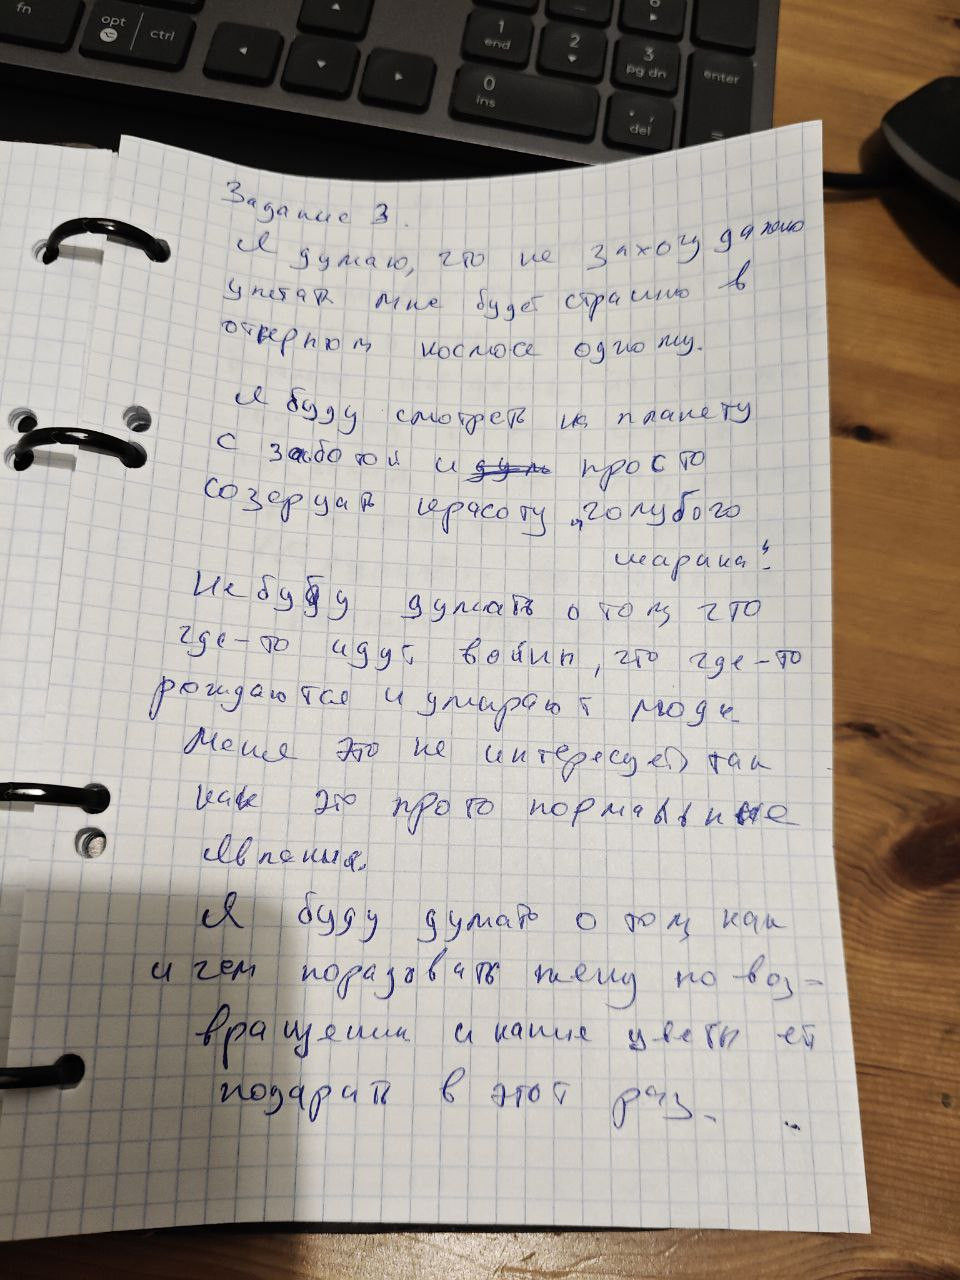 fn
opt
ctrl
1
end
2
3
pg dn
enter
0
ins
del
Задание 3.
Я думаю, что не захочу далеко
улетать мне будет страшно в
открытом космосе одному.
Я буду смотреть на планету
с заботой и просто
созерцать красоту „голубого
шарика“.
Не буду думать о том что
где-то идут войны, что где-то
рождаются и умирают люди
Меня это не интересует так
как это просто нормальные
явления.
Я буду думать о том как
и чем порадовать жену по воз-
вращении и какие цветы ей
подарить в этот раз.